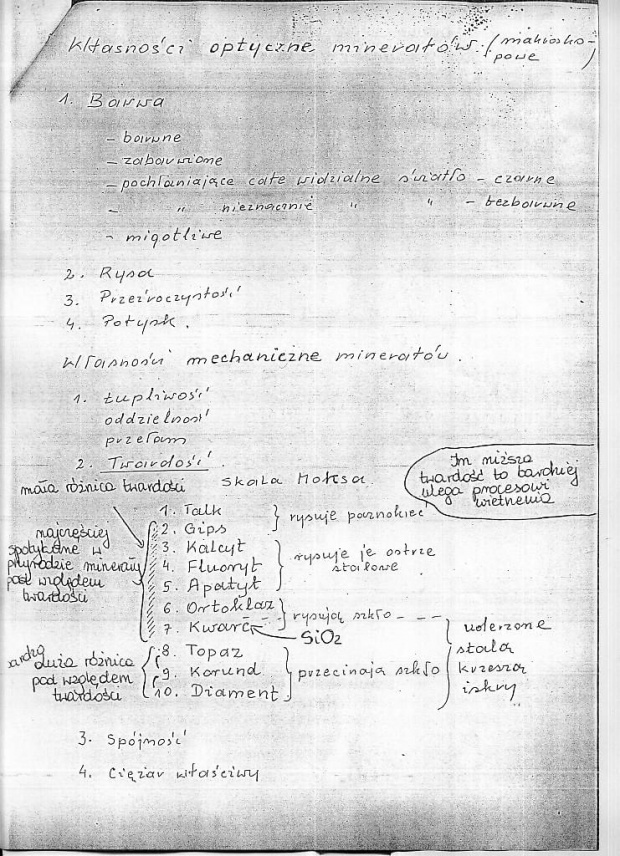 Własności optyczne minerałów. (makrosko-
powe)
1. Barwa
- barwne
- zabarwione
- pochłaniające całe widzialne światło - czarne
- " nieznacznie " " - bezbarwne
- migotliwe
2. Rysa
3. Przeźroczystość
4. Połysk.
Własności mechaniczne minerałów.
1. Łupliwość
oddzielność
przełam
2. Twardość.
Im niższa
twardość to bardziej
ulega procesowi
wietrzenia
mała różnica twardości
Skala Mohsa.
1. Talk
2. Gips
rysuje paznokieć
najczęściej
spotykane w
przyrodzie minerały
pod względem
twardości
3. Kalcyt
4. Fluoryt
5. Apatyt
rysuje je ostrze
stalowe
6. Ortoklaz
7. Kwarc
rysują szkło
SiO2
bardzo
duża różnica
pod względem
twardości
8. Topaz
9. Korund
10. Diament
przecinają szkło
uderzone
stalą
krzeszą
iskry
3. Spójność
4. Ciężar właściwy